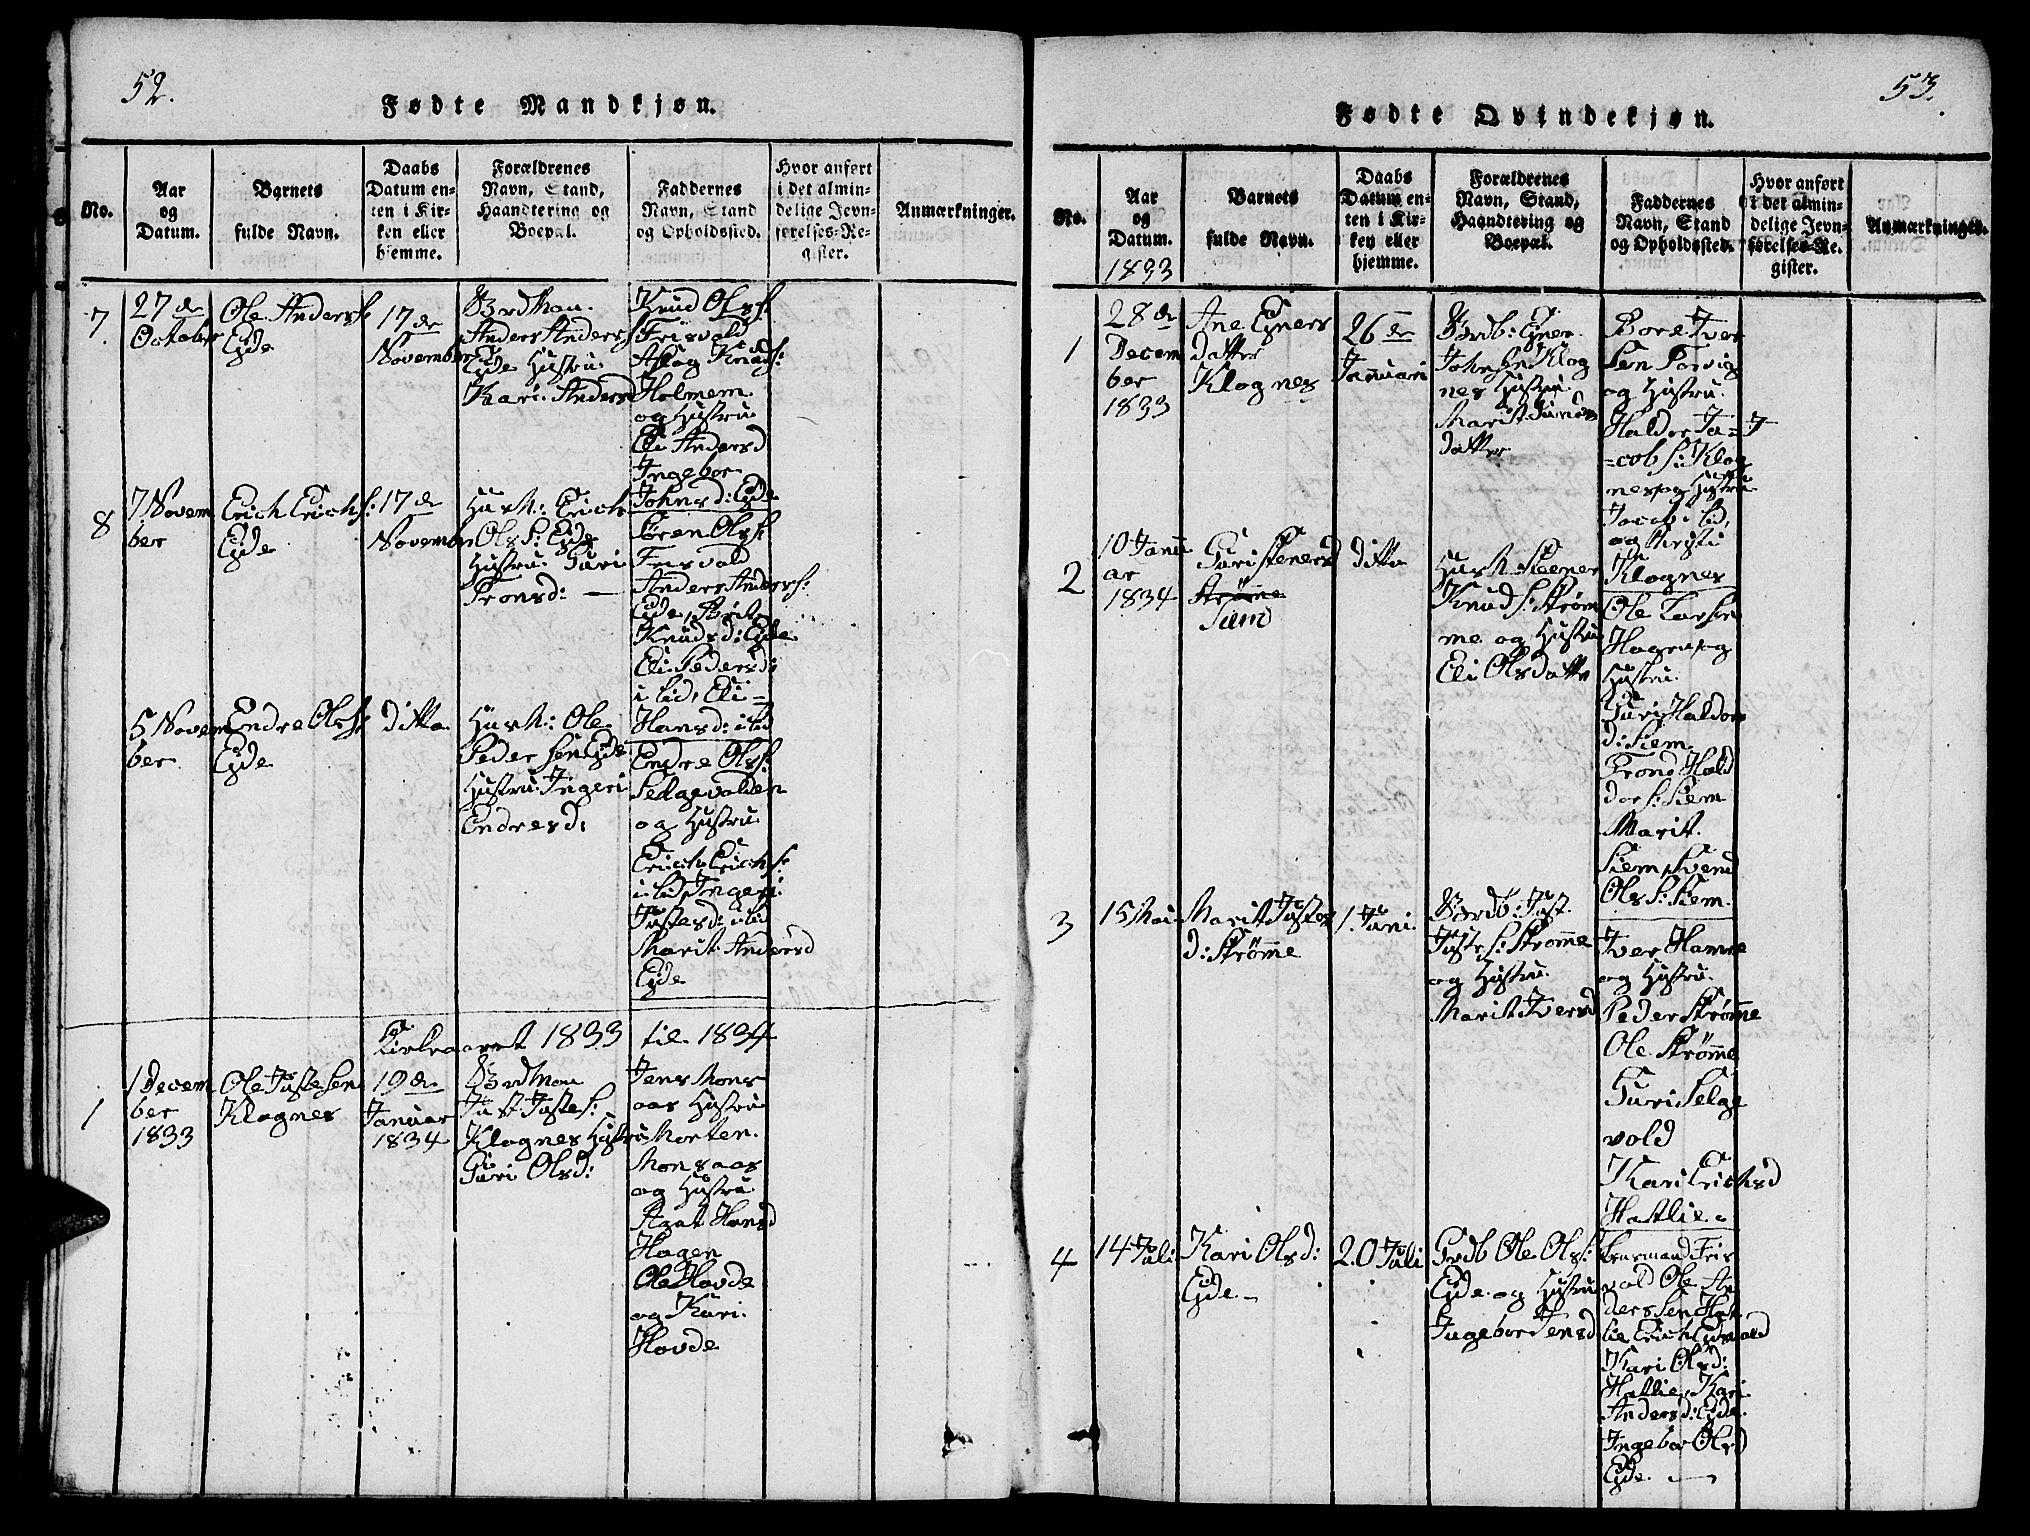 52.
Fødte Mandkjøn.
No.
Aar
og
Datum.
Barnets
fulde Navn.
Daabs
Datum en-
ten i Kir-
ken eller
hjemme.
Forældrenes
Navn, Stand,
Haandtering og
Boepæl.
Faddernes
Navn, Stand
og Opholdssted.
Hvor anført
i det almin-
delige Jevn-
førelses-Re-
gister.
Anmærkninger.
7.
27 de
October
Ole Anders:
Eyde
17 de
November
Brdman
Anders Anders:
Eyde Hustru
Kari Andersd
Knud Ols:
Frisvold
Aslag Knuds:
Holmem
og Hustru
Eli Andersd
Ingebor
Johnsd: Eyde
8
7 Novem
ber
Erich Erichs:
Eyde
17 de
November
Husm: Erich
Ols: Eyde
Hustru Guri
Tronsd: —
Søren Ols:
Frisvold
Anders Anders:
Eyde, Brit
Knudsd: Eyde
Eli Pedersd:
i Lid, Eli =
Hansd: i Lid
5 Novem
ber
Endre Ols:
Eyde
ditto
Husm: Ole
Pedersen Eyde
Hustru Ingeri
Endresd:
Endre Ols:
Selgevolden
og Hustru
Erich Erichs:
i Lid, Ingeri
Justesd: i Lid
Marit Andersd
Eyde
Kirkeaaret 1833 til 1834
1
1 Decem
ber
1833
Ole Justesen
Klognes
19 de
Januar
1834
Brdman
Just Justes:
Klognes Hustru
Guri Olsd:
Jens Mons
aas Hustru
Morten
Monsaas
og Hustru
Agat Hansd
Hagen
Ole Hovde
og Kari
Hovde
53.
Fødte Qvindekjøn.
No.
Aar
og
Datum.
1833
Barnets
fulde Navn.
Daabs
Datum en-
ten i Kir-
ken eller
hjemme.
Forældrenes
Navn, Stand,
Haandtering og
Boepæl.
Faddernes
Navn, Stand
og Opholdssted.
Hvor anført
i det almin-
delige Jevn-
førelses-Re-
gister.
Anmærkninger.
1
28 de
Decem
ber
1833
Ane Ejners
datter
Klognes
26 de
Januari
Brdb: Ejner
Johnsen Klog
nes Hustru
Marit
datter
Bore Iver
sen Torvig
og Hustru
Haldor Ja=
=cob s: Klog
nes, og Hustru
Jacob i Lid,
og Christi
Klognes
2
10 Janu
ar
1834
Guri Stenersd
Strømme
Siem
ditto
Husm: Steener
Knud s: Strøm
me og Hustru
Eli Olsdatter
Ole Larsen
Hagen, og
Hustru
Guri Haldors
d: Siem
Trond Hald
dor s: Siem
Marit
Siem, Svend
Ols s: Siem
3
15 Mai
Marit Justes
d: Strømme
1. Juni
Brdb: Just
Juste s: Strømme
og Hustru
Marit Iversd
Iver Hamre
og Hustru
Peder Strømme
Ole Strømme
Guri Selge
vold
Kari Erichsd
Hatlie
4
14 Juli
Kari Olsd:
Eyde —
20 Juli
Grdb Ole Ols:
Eyde og Hustru
Ingebor Jensd
Lensmand Fris
vold Ole An
dersen Hat
lie, Erich
Kari Olsd:
Hatlie, Kari
Andersd: Eyde
Ingebor Olsd
Eyde —